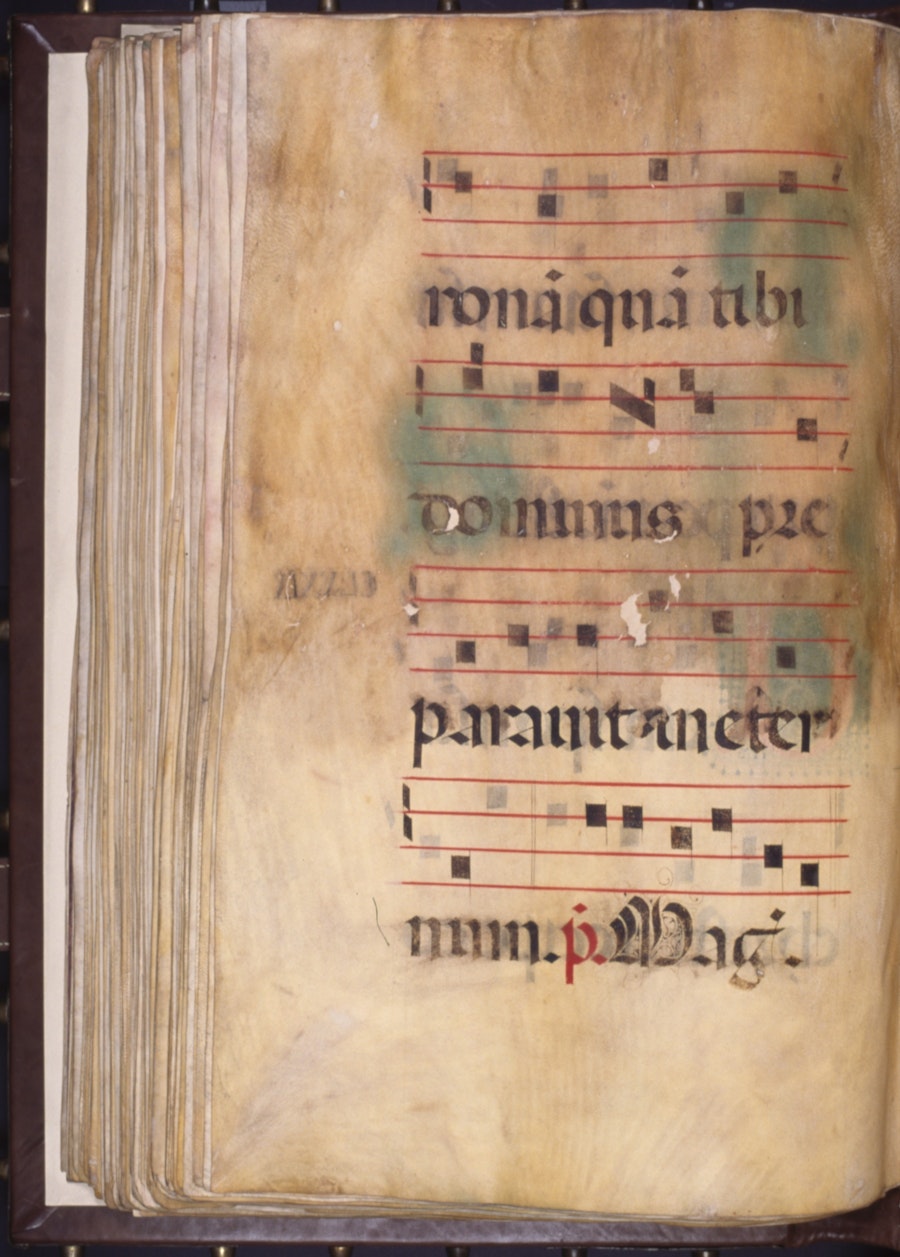 ronā quā tibi
dominus pre
parauit in eter
num. p̄. Maḡ.